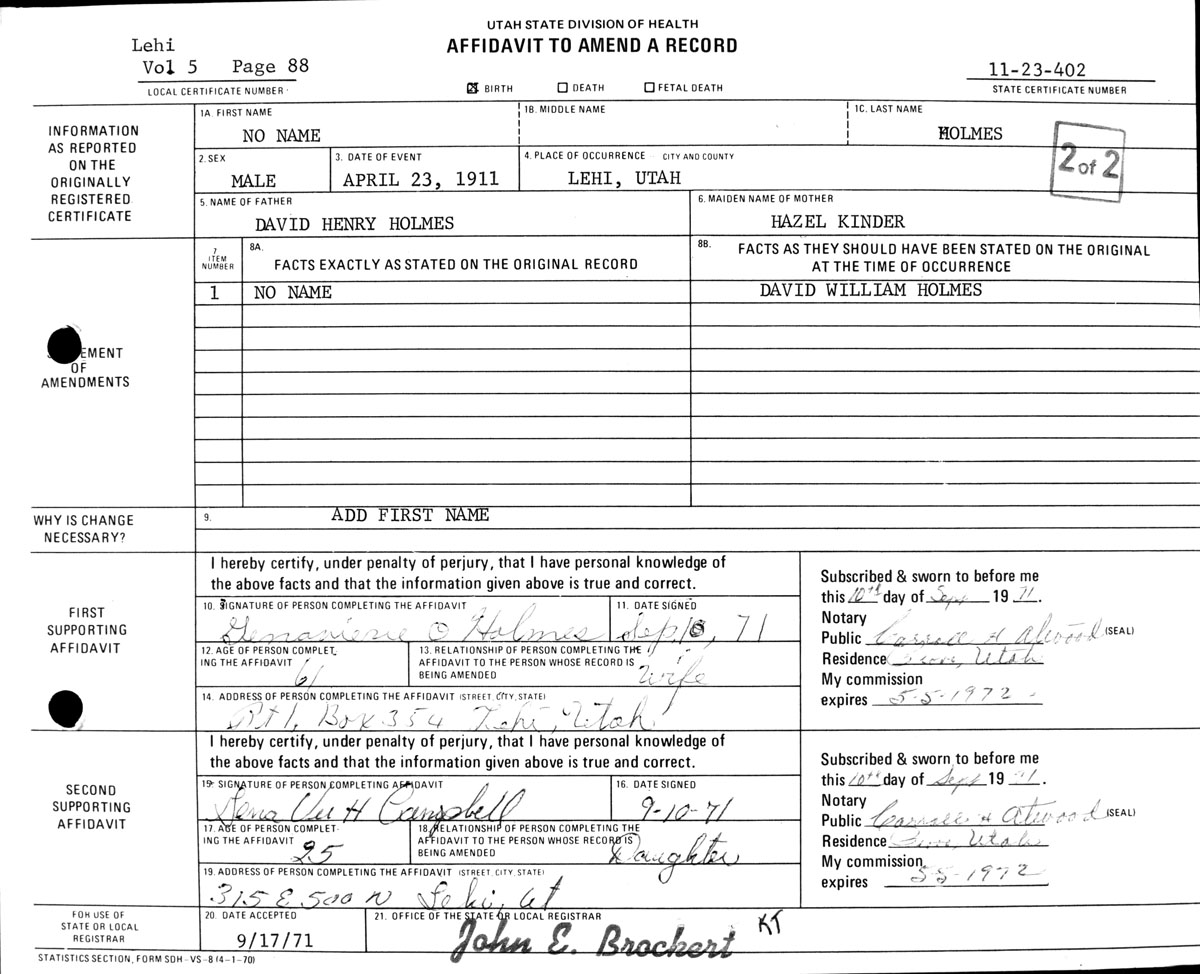 UTAH STATE DIVISION OF HEALTH
AFFIDAVIT TO AMEND A RECORD
Lehi
Vol 5 Page 88
LOCAL CERTIFICATE NUMBER
☒ BIRTH ☐ DEATH ☐ FETAL DEATH
11-23-402
STATE CERTIFICATE NUMBER
INFORMATION
AS REPORTED
ON THE
ORIGINALLY
REGISTERED
CERTIFICATE
1A. FIRST NAME
NO NAME
1B. MIDDLE NAME
1C. LAST NAME
HOLMES
2 of 2
2. SEX
MALE
3. DATE OF EVENT
APRIL 23, 1911
4. PLACE OF OCCURRENCE - CITY AND COUNTY
LEHI, UTAH
5. NAME OF FATHER
DAVID HENRY HOLMES
6. MAIDEN NAME OF MOTHER
HAZEL KINDER
EMENT
OF
AMENDMENTS
7
ITEM
NUMBER
8A.
FACTS EXACTLY AS STATED ON THE ORIGINAL RECORD
8B. FACTS AS THEY SHOULD HAVE BEEN STATED ON THE ORIGINAL
AT THE TIME OF OCCURRENCE
1 NO NAME DAVID WILLIAM HOLMES
WHY IS CHANGE
NECESSARY?
9. ADD FIRST NAME
FIRST
SUPPORTING
AFFIDAVIT
I hereby certify, under penalty of perjury, that I have personal knowledge of
the above facts and that the information given above is true and correct.
10. SIGNATURE OF PERSON COMPLETING THE AFFIDAVIT
Genavieve O Holmes
11. DATE SIGNED
Sep 10, 71
12. AGE OF PERSON COMPLET-
ING THE AFFIDAVIT
61
13. RELATIONSHIP OF PERSON COMPLETING THE
AFFIDAVIT TO THE PERSON WHOSE RECORD IS
BEING AMENDED
Wife
14. ADDRESS OF PERSON COMPLETING THE AFFIDAVIT (STREET, CITY, STATE)
Rt 1, Box 354 Lehi, Utah
Subscribed & sworn to before me
this 10th day of Sept 19 71.
Notary
Public H Atwood (SEAL)
Residence Utah
My commission
expires 5-5-1972
SECOND
SUPPORTING
AFFIDAVIT
I hereby certify, under penalty of perjury, that I have personal knowledge of
the above facts and that the information given above is true and correct.
15. SIGNATURE OF PERSON COMPLETING AFFIDAVIT
H Campbell
16. DATE SIGNED
9-10-71
17. AGE OF PERSON COMPLET-
ING THE AFFIDAVIT
25
18. RELATIONSHIP OF PERSON COMPLETING THE
AFFIDAVIT TO THE PERSON WHOSE RECORD IS
BEING AMENDED
Daughter
19. ADDRESS OF PERSON COMPLETING THE AFFIDAVIT (STREET, CITY, STATE)
315 E 500 N Lehi, Ut
Subscribed & sworn to before me
this 10th day of Sept 19 71.
Notary
Public H Atwood (SEAL)
Residence Utah
My commission
expires 5-5-1972
FOR USE OF
STATE OR LOCAL
REGISTRAR
20. DATE ACCEPTED
9/17/71
21. OFFICE OF THE STATE OR LOCAL REGISTRAR
John E. Brockert KT
STATISTICS SECTION, FORM SDH-VS-8 (4-1-70)